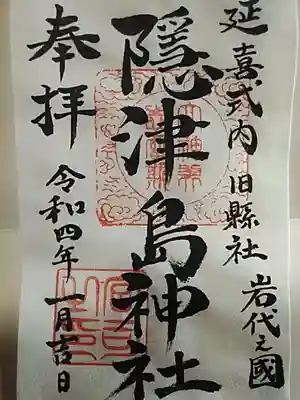 延喜式内 旧縣社 岩代之國
隠津島神社
奉拝
令和四年一月吉日